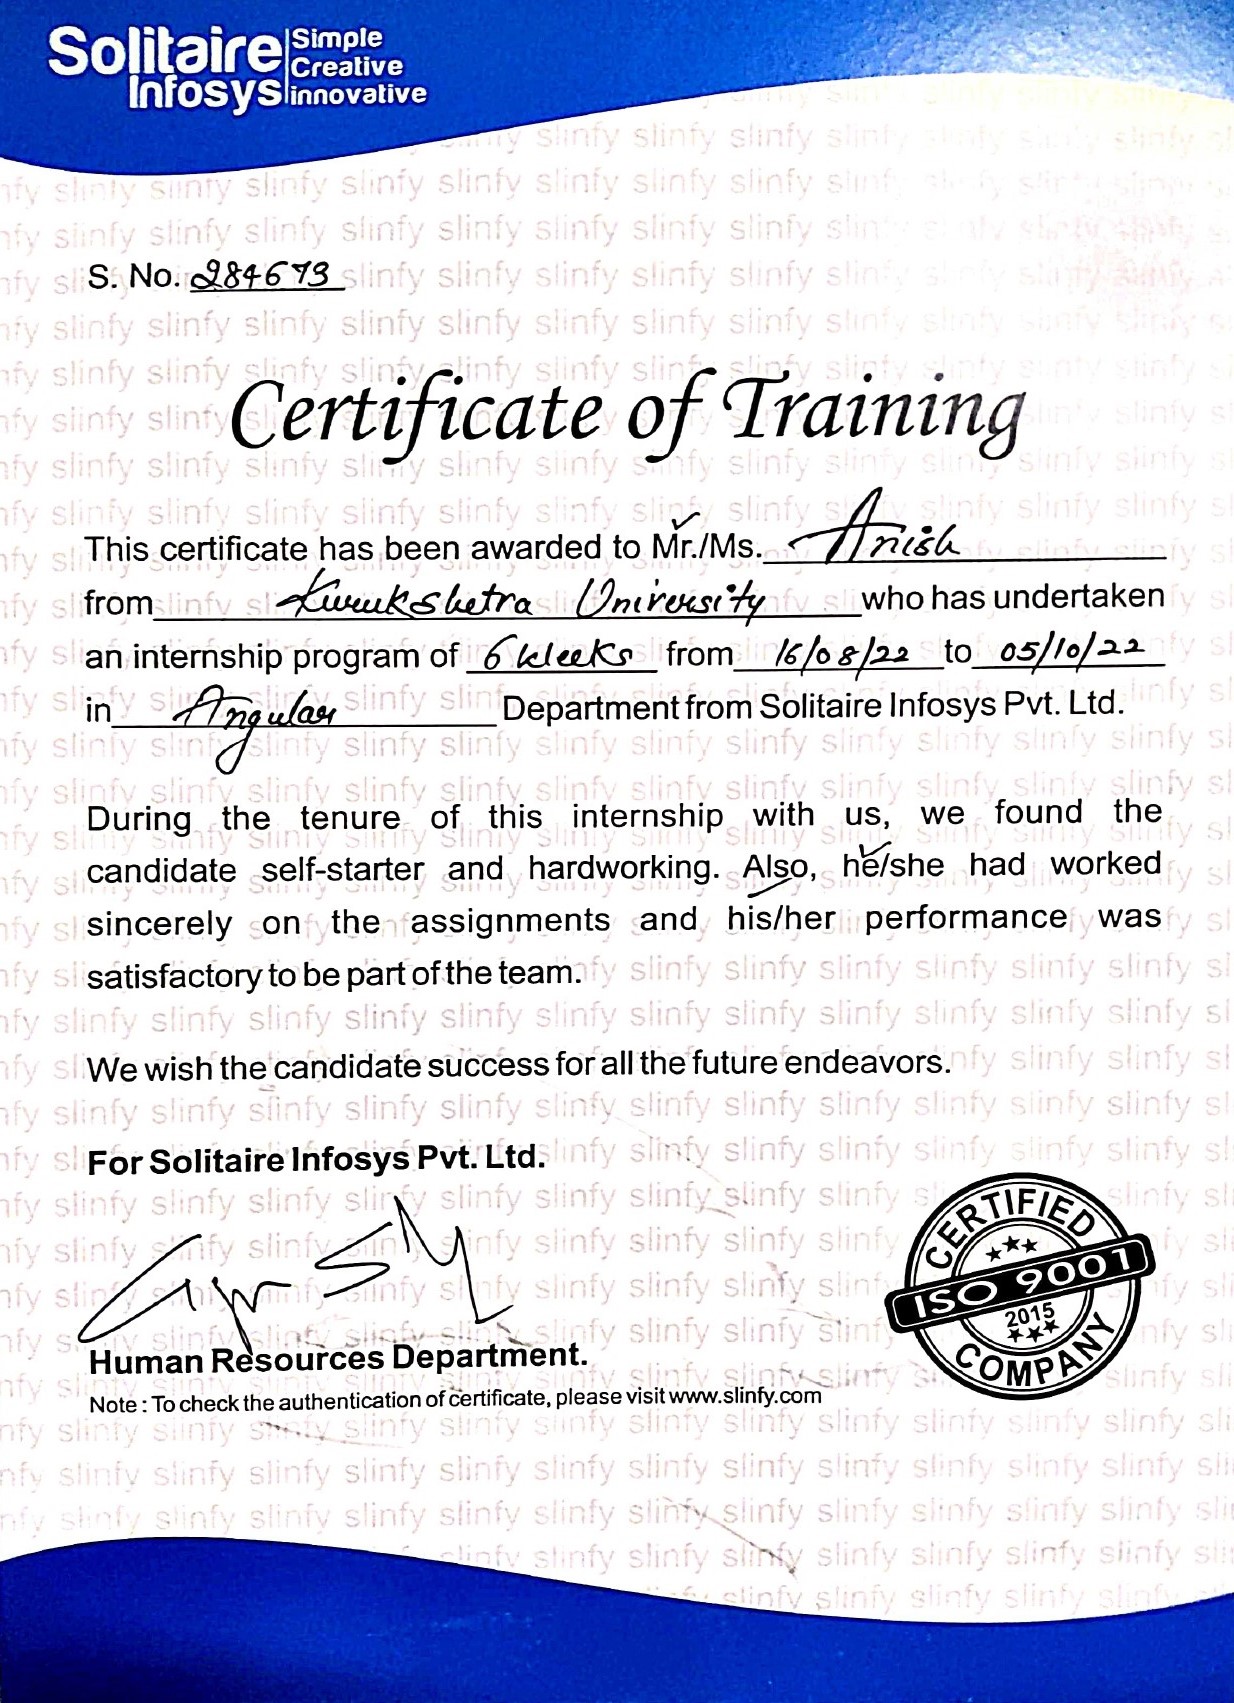 Solitaire
Infosys
Simple
Creative
innovative
S. No. 284673
Certificate of Training
This certificate has been awarded to Mr./Ms. Anish
from Kurukshetra University who has undertaken
an internship program of 6 Weeks from 16/08/22 to 05/10/22
in Angular Department from Solitaire Infosys Pvt. Ltd.
During the tenure of this internship with us, we found the
candidate self-starter and hardworking. Also, he/she had worked
sincerely on the assignments and his/her performance was
satisfactory to be part of the team.
We wish the candidate success for all the future endeavors.
For Solitaire Infosys Pvt. Ltd.
Human Resources Department.
Note : To check the authentication of certificate, please visit www.slinfy.com
CERTIFIED
ISO 9001
2015
COMPANY